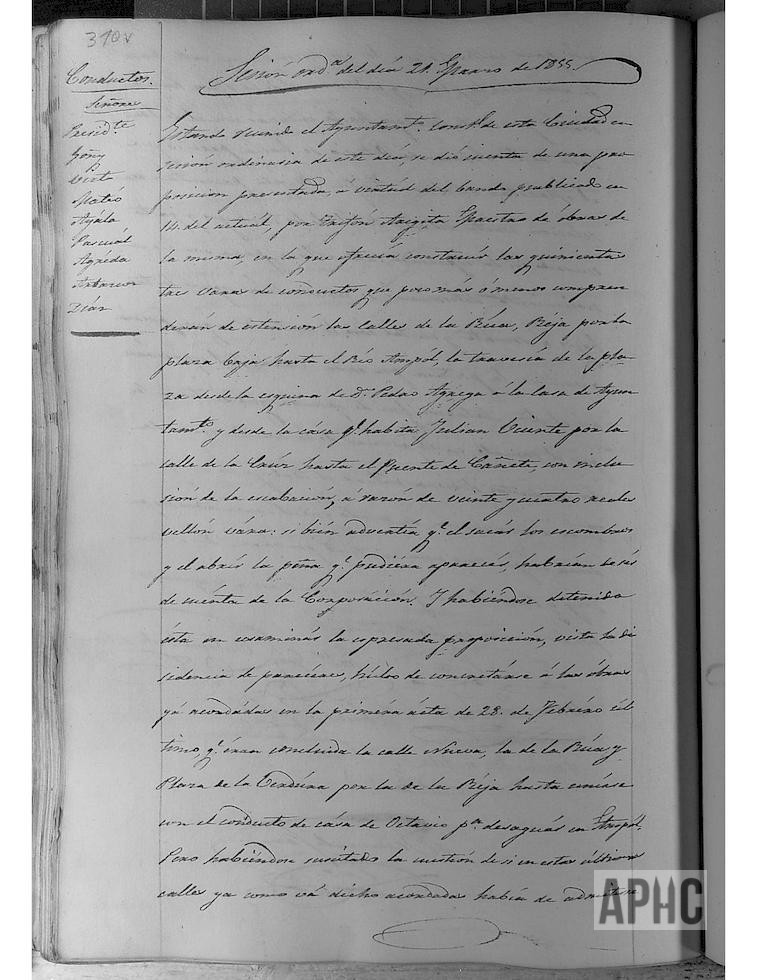 390v
Sesión ord.ª del dia 21. Marzo de 1855.
Conductos.
Señores
Presid.te
Goñy
Mateo
Ayala,
Pascual
Agreda
Díaz
Estando reunido el Ayuntam.to const.l de esta Ciudad en
sesion ordinaria de este día, se dió cuenta de una pro
posicion presentada, á virtud del bando publicado en
14. del actuál, por Maestro de óbras de
la misma, en la que ofrecía construir las quinientas
tres varas de conductos que poco más ó menos compren
derán de estensión las calles de la Rúa, Réja por la
plaza baja hasta el Río la travesía de la pla-
za desde la esquina de D.n Pedro á la Casa de Ayun
tam.to y desde la cása q.e habita Julian Vicente por la
calle de la Crúz hasta el Puente de Cañete, con inclu
sión de la escabación, á razón de veinte y cuatro reales
vellón vára: si bién advertía q.e el sacár los escombros
y el abrír la peña q.e pudiéra aparecér, habrían de sér
de cuénta de la Corporación. Y habiéndose detenido
ésta en examinár la espresada proposición, vista la di
sidencia de paréceres, húbo de concretárse á las óbras
yá acordádas en la priméra ácta de 28. de Febréro úl
timo, q.e éran concluida la calle Nueva, la de la Rúa y
Plaza de la Verdúra por la de la Réja hasta unírse
con el condúcto de cása de Octavio p.a desaguár en
Pero habiéndose suscitado la cuestión de si en estas últimas
calles ya como vá dicho acordadas había de admitirse
APHC